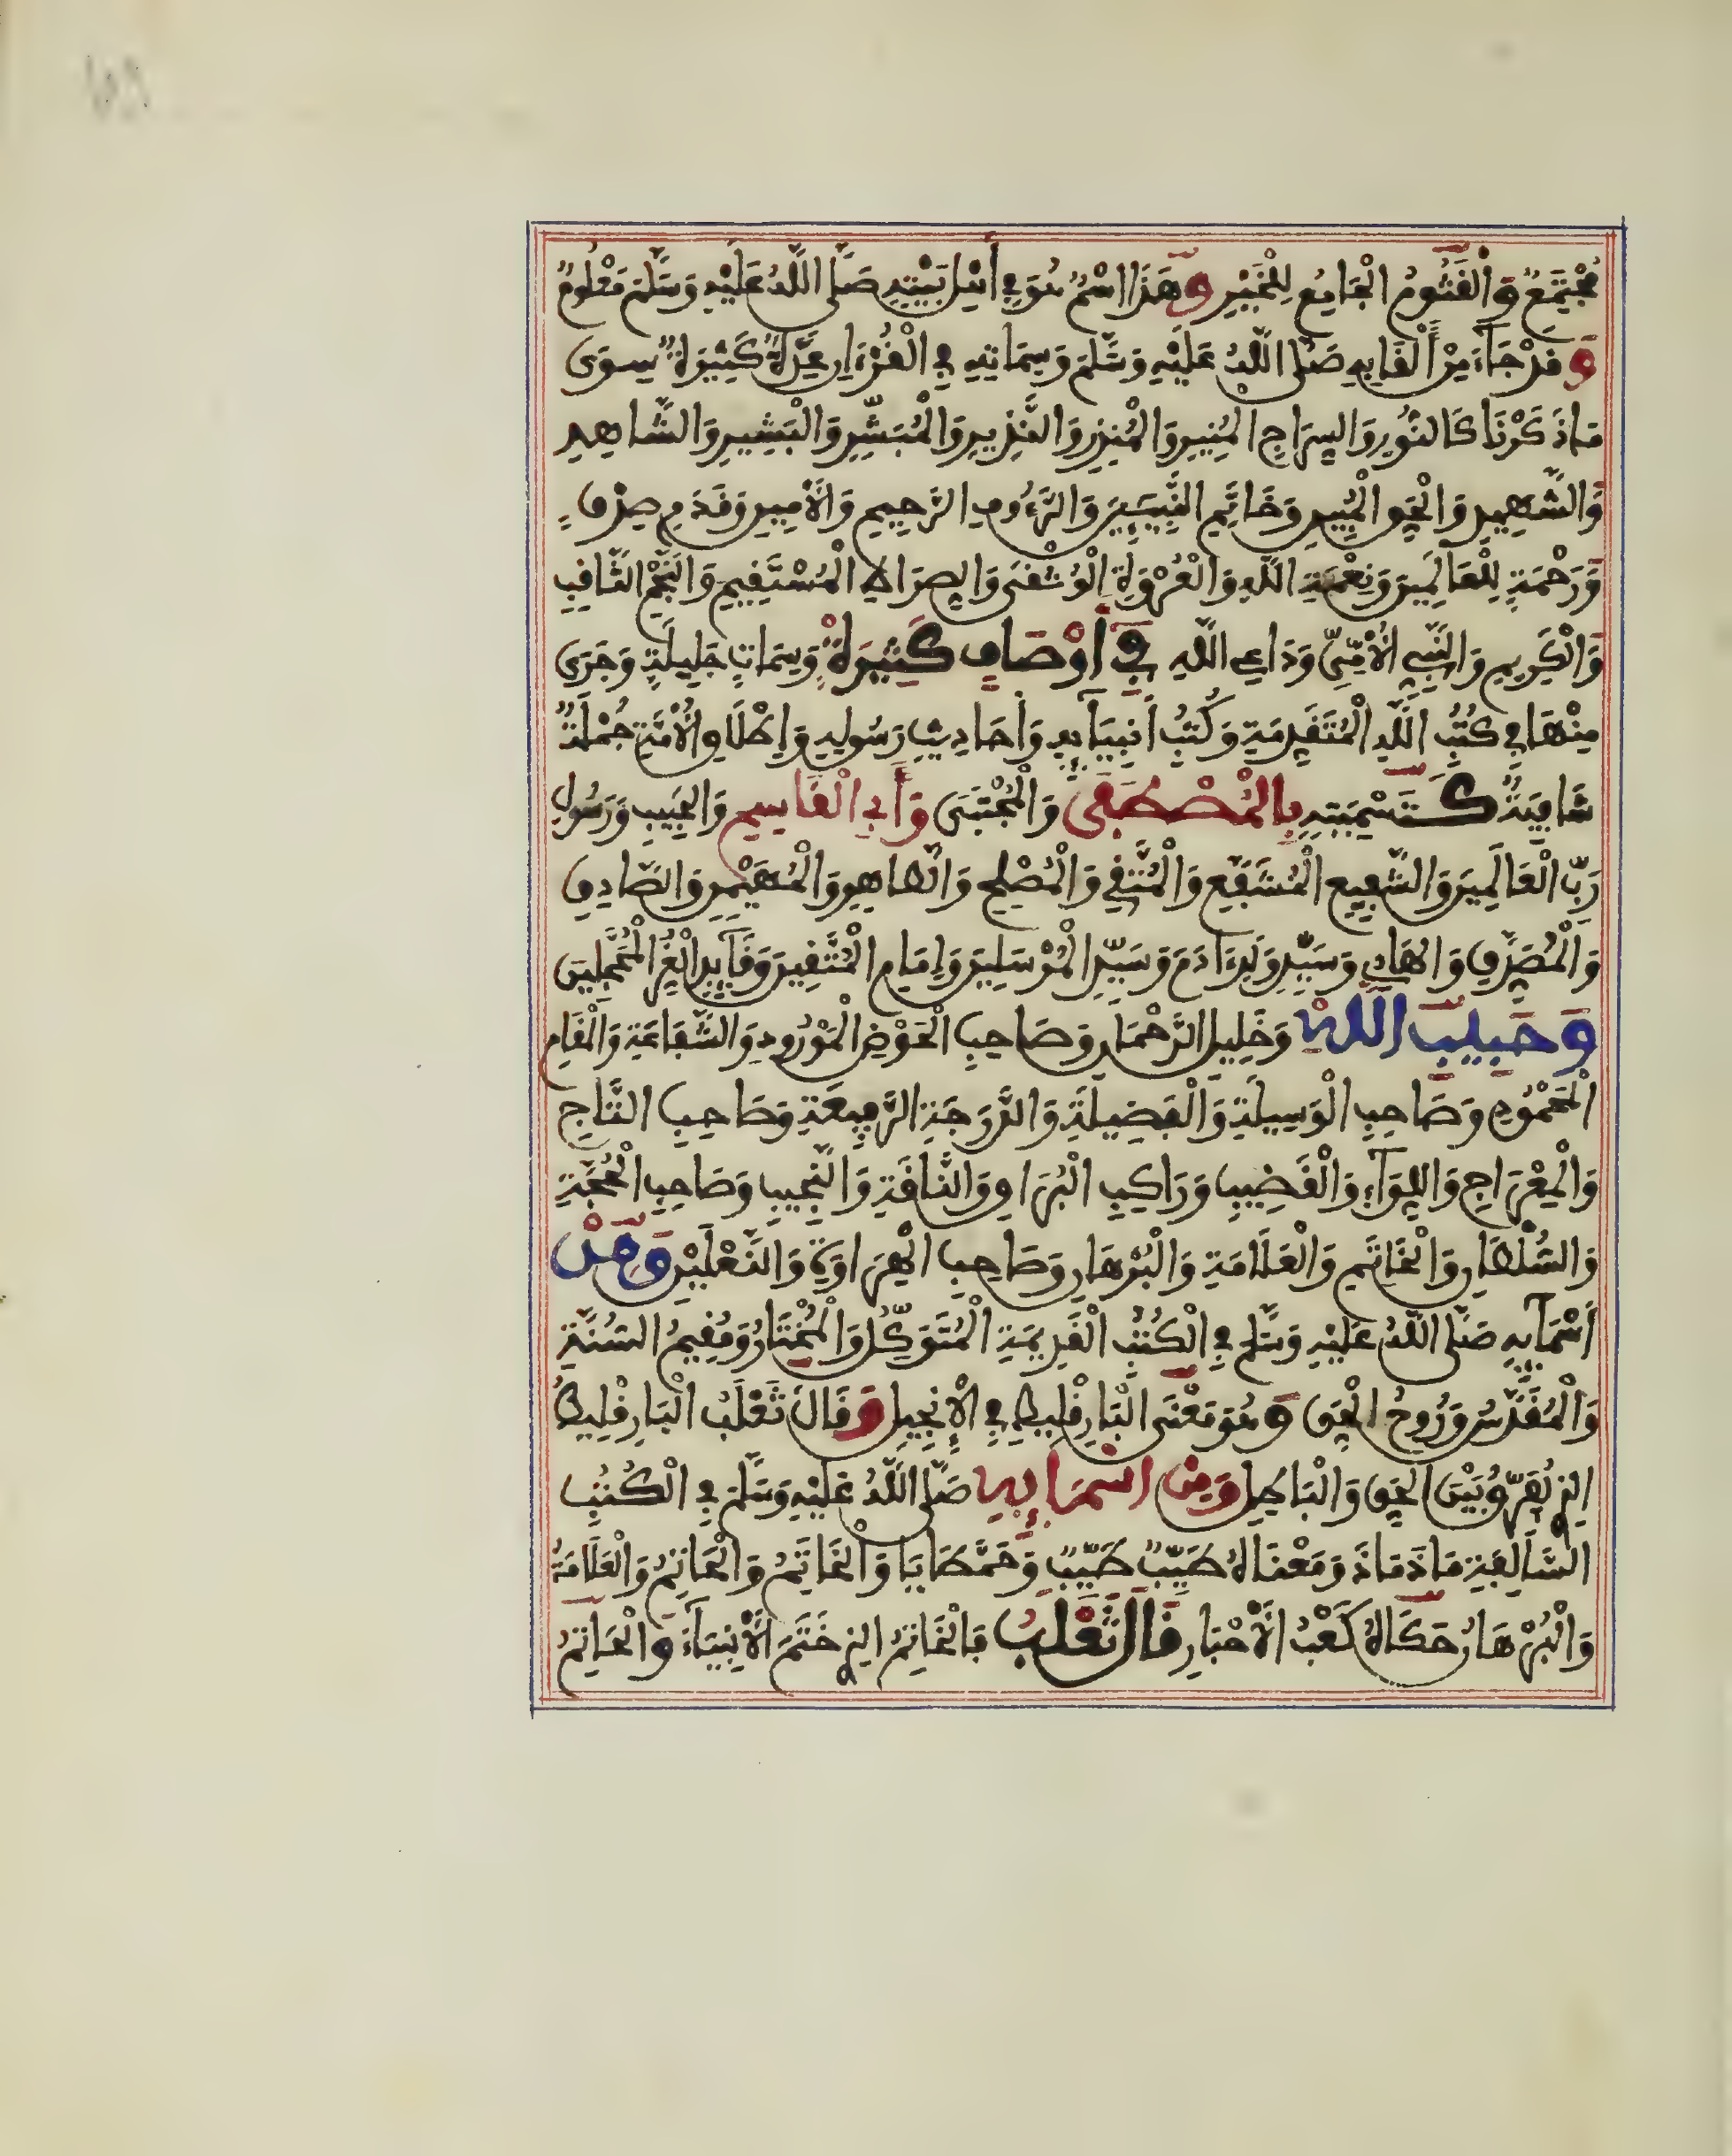 مُجْتَمِعٌ وَالْقَثُومُ الْجَامِعُ لِلْخَيْرِ وَهَذَا اسْمٌ هُوَ فِي أَهْلِ بَيْتِهِ صَلَّى اللَّهُ عَلَيْهِ وَسَلَّمَ مَعْلُومٌ
وَقَدْ جَاءَ مِنْ أَلْقَابِهِ صَلَّى اللَّهُ عَلَيْهِ وَسَلَّمَ وَسِمَاتِهِ فِي الْقُرْءَانِ عِدَّةٌ كَثِيرَةٌ سِوَى
مَا ذَكَرْنَا كَالنُّورِ وَالسِّرَاجِ الْمُنِيرِ وَالْمُنْذِرِ وَالنَّذِيرِ وَالْمُبَشِّرِ وَالْبَشِيرِ وَالشَّاهِدِ
وَالشَّهِيدِ وَالْحَقِّ الْمُبِينِ وَخَاتِمِ النَّبِيِّينَ وَالرَّءُوفِ الرَّحِيمِ وَالْأَمِينِ وَقَدَمِ صِدْقٍ
وَرَحْمَةٍ لِلْعَالَمِينَ وَنِعْمَةِ اللَّهِ وَالْعُرْوَةِ الْوُثْقَى وَالصِّرَاطِ الْمُسْتَقِيمِ وَالنَّجْمِ الثَّاقِبِ
وَالْكَرِيمِ وَالنَّبِيِّ الْأُمِّيِّ وَدَاعِي اللَّهِ فِي أَوْصَافٍ كَثِيرَةٍ وَسِمَاتٍ جَلِيلَةٍ وَجَرَى
مِنْهَا فِي كُتُبِ اللَّهِ الْمُتَقَدِّمَةِ وَكُتُبِ أَنْبِيَآئِهِ وَأَحَادِيثِ رَسُولِهِ وَإِطْلَاقِ الْأُمَّةِ جُمْلَةٌ
شَافِيَةٌ كَتَسْمِيَتِهِ بِالْمُصْطَفَى وَالْمُجْتَبَى وَأَبِي الْقَاسِمِ وَالْحَبِيبِ وَرَسُولِ
رَبِّ الْعَالَمِينَ وَالشَّفِيعِ الْمُشَفَّعِ وَالْمُتَّقِي وَالْمُصْلِحِ وَالطَّاهِرِ وَالْمُهَيْمِنِ وَالصَّادِقِ
وَالْمُصَدَّقِ وَالْهَادِي وَسَيِّدِ وَلَدِ ءَادَمَ وَسَيِّدِ الْمُرْسَلِينَ وَإِمَامِ الْمُتَّقِينَ وَقَآئِدِ الْغُرِّ الْمُحَجَّلِينَ
وَحَبِيبِ اللَّهِ وَخَلِيلِ الرَّحْمَانِ وَصَاحِبِ الْحَوْضِ الْمَوْرُودِ وَالشَّفَاعَةِ وَالْمَقَامِ
الْمَحْمُودِ وَصَاحِبِ الْوَسِيلَةِ وَالْفَضِيلَةِ وَالدَّرَجَةِ الرَّفِيعَةِ وَصَاحِبِ التَّاجِ
وَالْمِعْرَاجِ وَاللِّوَآءِ وَالْقَضِيبِ وَرَاكِبِ الْبُرَاقِ وَالنَّاقَةِ وَالنَّجِيبِ وَصَاحِبِ الْحُجَّةِ
وَالسُّلْطَانِ وَالْخَاتَمِ وَالْعَلَامَةِ وَالْبُرْهَانِ وَصَاحِبِ الْهِرَاوَةِ وَالنَّعْلَيْنِ وَمِنْ
أَسْمَآئِهِ صَلَّى اللَّهُ عَلَيْهِ وَسَلَّمَ فِي الْكُتُبِ الْقَدِيمَةِ الْمُتَوَكِّلُ وَالْمُخْتَارُ وَمُقِيمُ السُّنَّةِ
وَالْمُقَدَّسُ وَرُوحُ الْحَقِّ وَهُوَ مَعْنَى الْبَارِقْلِيطِ فِي الْإِنْجِيلِ وَقَالَ ثَعْلَبُ الْبَارِقْلِيطُ
الَّذِي يُفَرِّقُ بَيْنَ الْحَقِّ وَالْبَاطِلِ وَمِنْ اَسْمَائِهِ صَلَّى اللَّهُ عَلَيْهِ وَسَلَّمَ فِي الْكُتُبِ
السَّالِفَةِ مَاذَ مَاذَ وَمَعْنَاهُ طَيِّبٌ طَيِّبٌ وَحَمَّطَايَا وَالْخَاتَمُ وَالْحَاتِمُ وَالْعَلَامَةُ
وَالْبُرْهَانُ حَكَاهُ كَعْبُ الْأَحْبَارِ قَالَ ثَعْلَبُ فَالْخَاتِمُ الَّذِي خَتَمَ الْأَنْبِيَآءَ وَالْحَاتِمُ